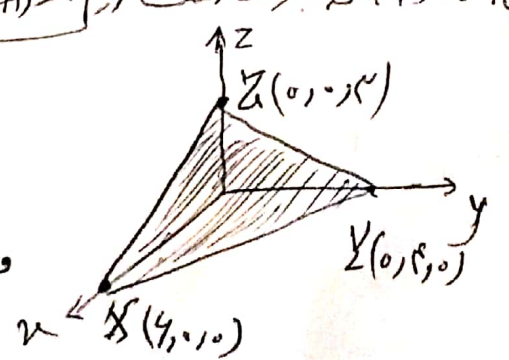 z
Z(۰,۰,۲)
y
Y(۰,۴,۰)
x
X(۶,۰,۰)